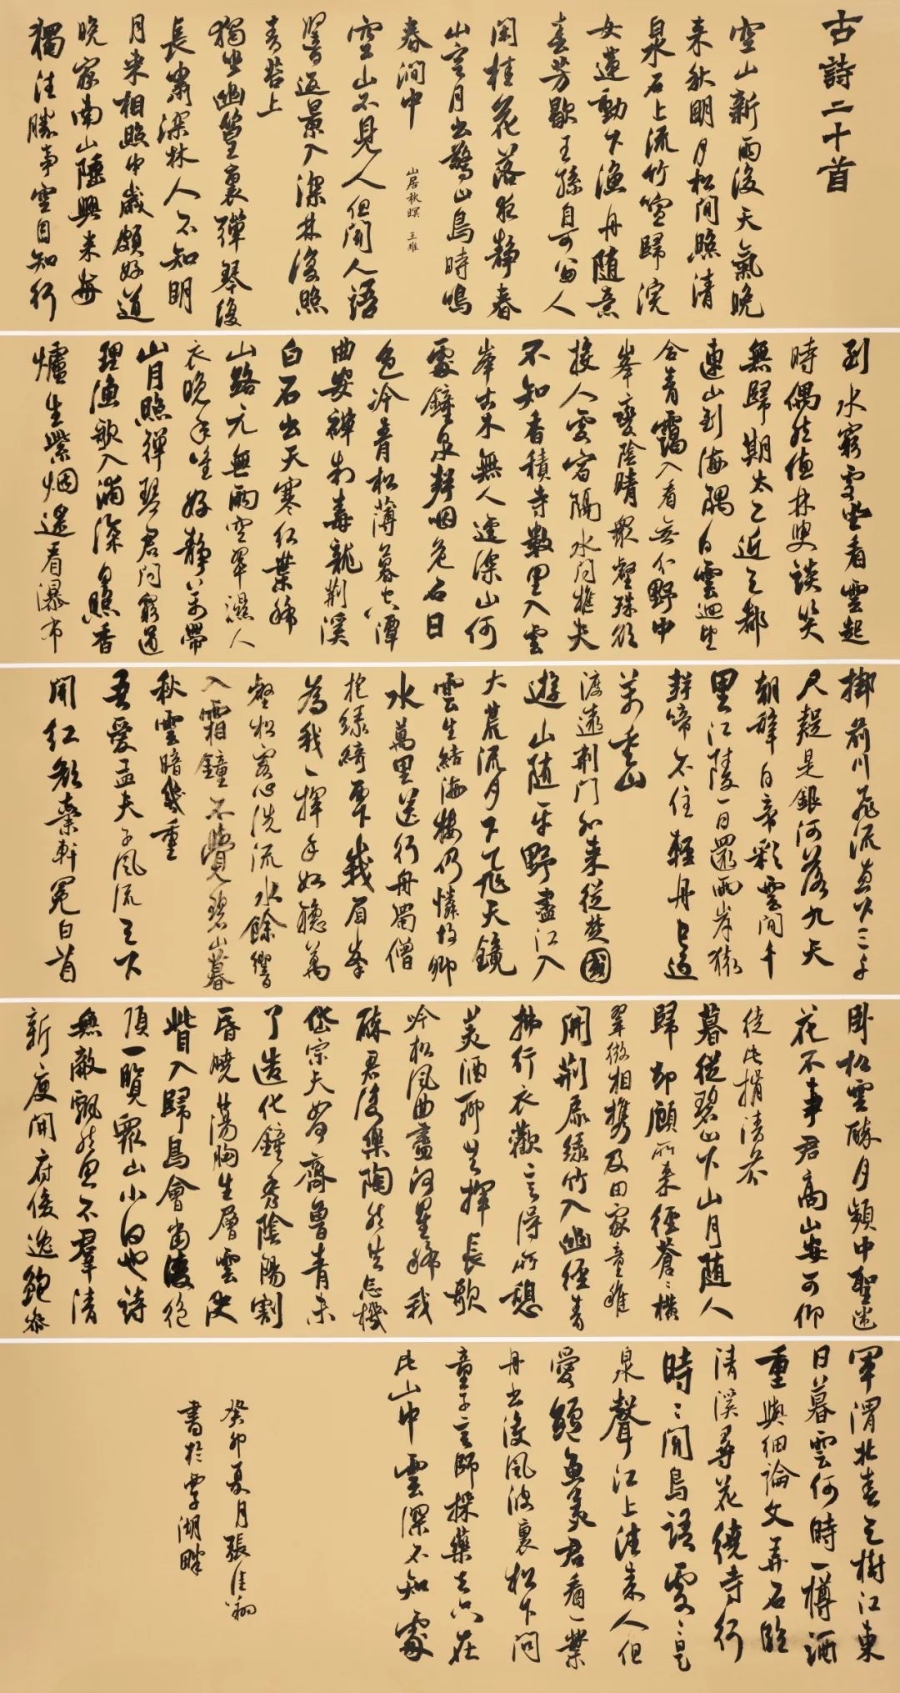 古詩二十首
空山新雨後天氣晚
来秋明月松间照清
泉石上流竹喧歸浣
女蓮動下渔舟随意
春芳歇王孫自可留人
閑桂花落夜静春
山空月出驚山鳥時鳴
春澗中
山居秋暝 王維
空山不見人但聞人語
響返景入深林復照
青苔上
獨坐幽篁裏彈琴復
長嘯深林人不知明
月来相照中歲頗好道
晚家南山陲興来每
獨往勝事空自知行
到水窮處坐看雲起
時偶然值林叟談笑
無歸期太乙近天都
連山到海隅白雲迴望
合青靄入看無分野中
峯變陰晴衆壑殊欲
投人處宿隔水问樵夫
不知香積寺數里入雲
峯古木無人逕深山何
處鐘泉聲咽危石日
色冷青松薄暮空潭
曲安禪制毒龍荆溪
白石出天寒红葉稀
山路元無雨空翠濕人
衣晚年唯好静萬
山月照彈琴君问窮通
理漁歌入浦深日照香
爐生紫烟遥看瀑布
掛前川飛流直下三千
尺疑是銀河落九天
朝辭白帝彩雲间千
里江陵一日還兩岸猿
聲啼不住輕舟已過
萬重山
渡遠荆門外来從楚國
遊山随平野盡江入
大荒流月下飛天鏡
雲生結海楼仍憐故鄉
水萬里送行舟蜀僧
抱緑綺西下峨眉峯
為我一揮手如聽萬
壑松客心洗流水餘響
入霜鐘不覺碧山暮
秋雲暗幾重
吾愛孟夫子風流天下
聞红颜棄軒冕白首
卧松雲醉月頻中聖迷
花不事君高山安可仰
徒此揖清芬
暮從碧山下山月随人
歸却顧所来徑蒼〻横
翠微相携及田家童稚
開荆扉緑竹入幽徑青
拂行衣歡言得所憩
美酒聊共揮長歌
吟松風曲盡河星稀我
醉君復樂陶然共忘機
岱宗夫如何齊魯青未
了造化鐘秀陰陽割
昏曉蕩胸生層雲决
眥入歸鳥會當凌绝
頂一覽衆山小白也詩
無敵飘然思不羣清
新庾開府俊逸鮑参
軍渭北春天樹江東
日暮雲何時一樽酒
重與细論文弄石臨
清溪尋花繞寺行
時〻聞鳥語處〻是
泉聲江上往来人但
愛鱸魚美君看一葉
舟出没風波裏松下问
童子言師採藥去只在
此山中雲深不知處
癸卯夏月張佳
書於湖畔